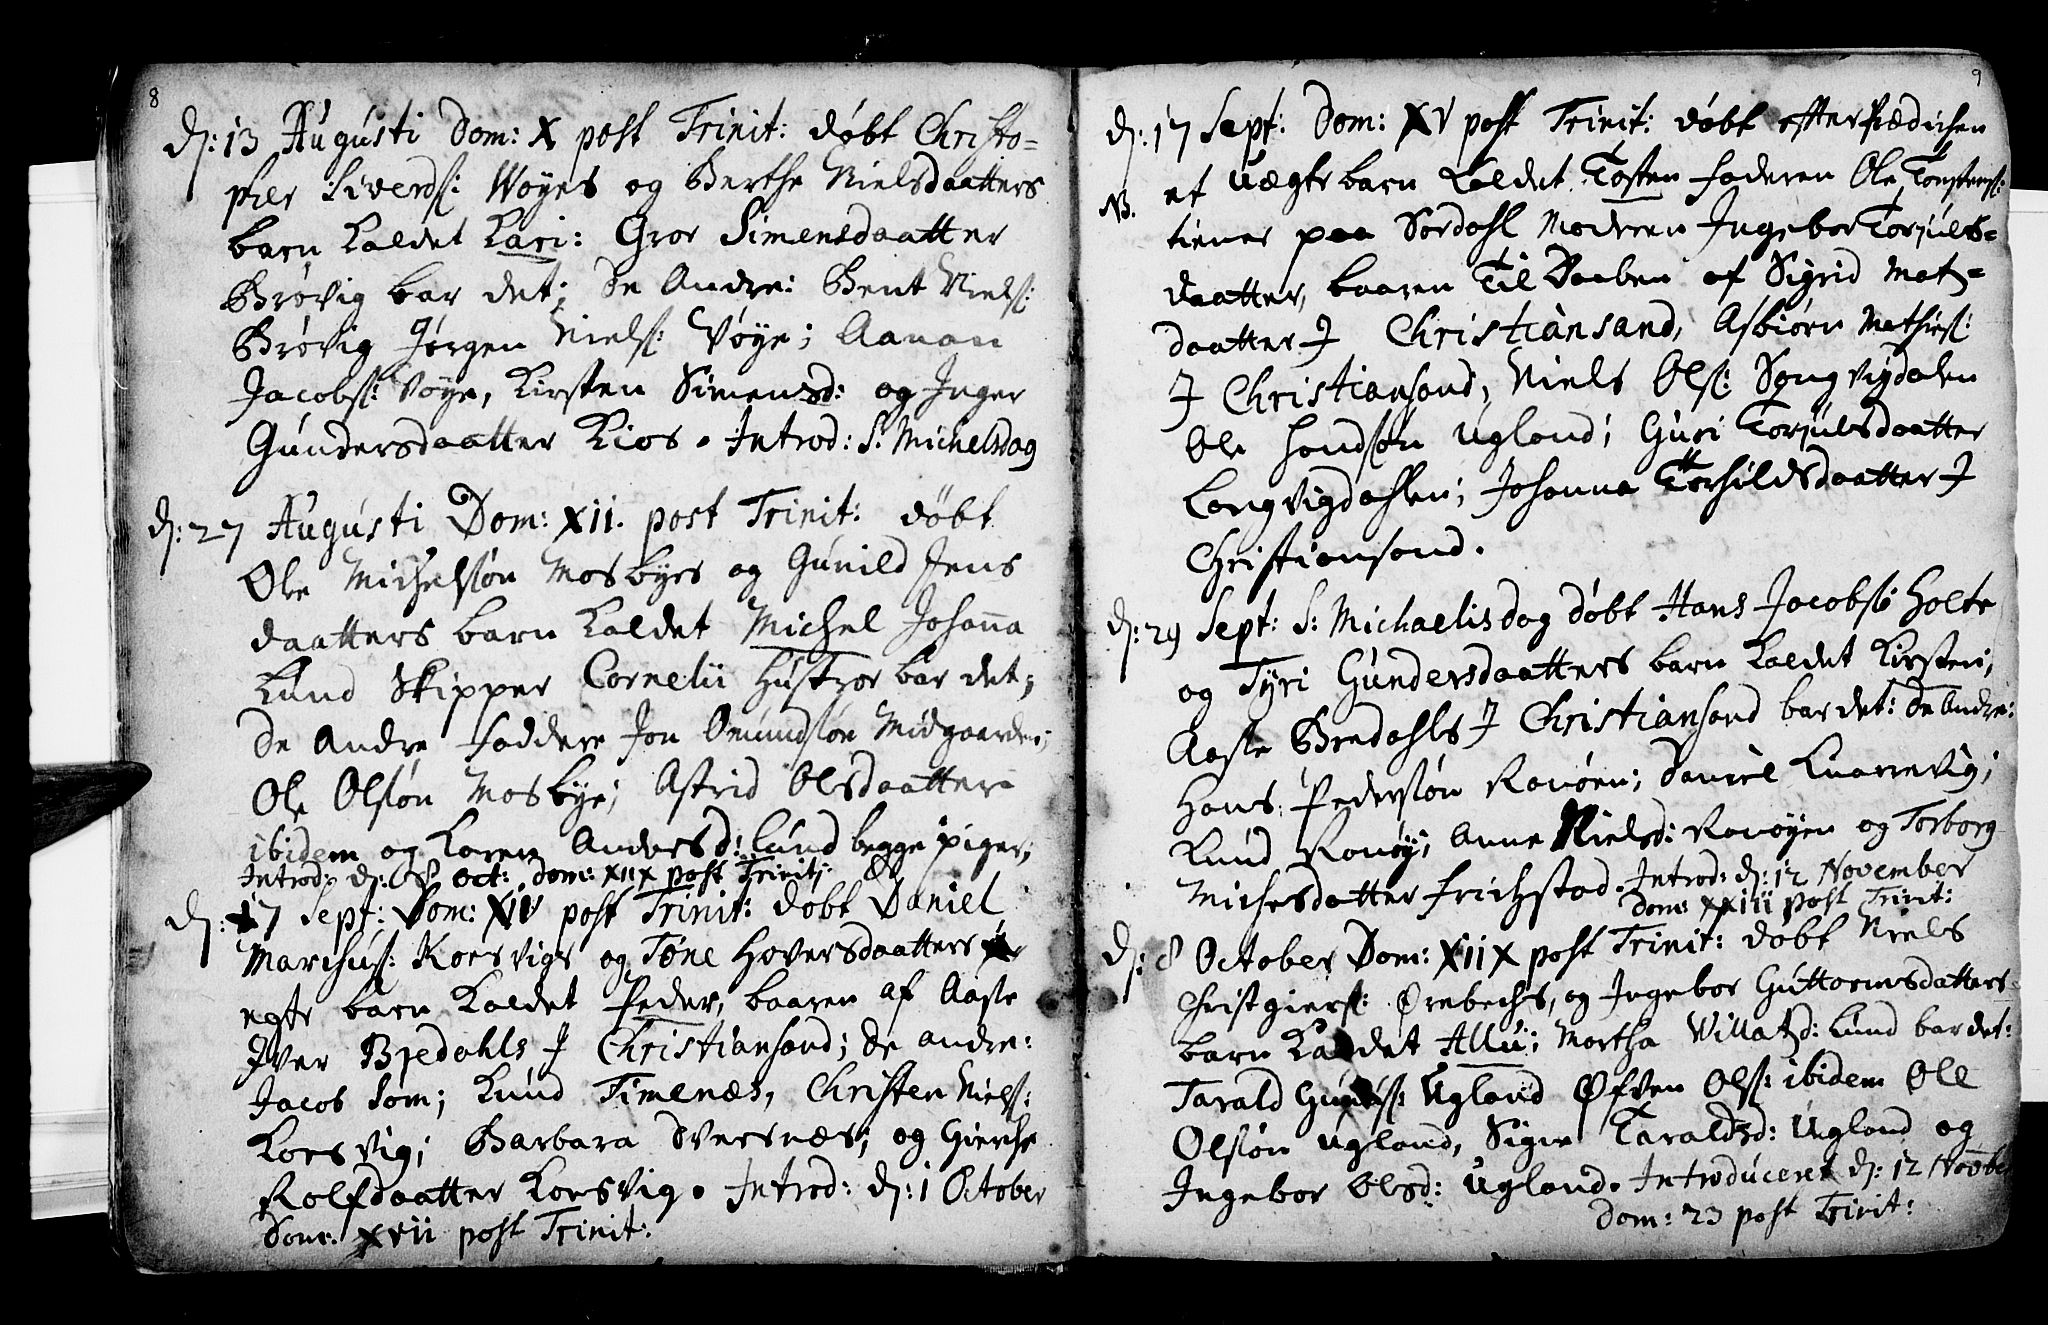 8
D: 13 Augusti Dom: X post Trinit: døbt Christo-
pher Siverds: Wøyes og Berthe Nielsdaatters
barn kaldet Kari: Groe Simensdaatter
Brøvig bar det; de Andre: Bent Niels:
Brøvig Jørgen Niels: Vøye; Aanon
Jacobs: Vøye, Kirsten Simensd: og Inger
Gundersdaatter Kios. Introd: S: Michelsdag
D: 27 Augusti Dom: XII. post Trinit: døbt
Ole Michelsøn Mosbyes og Gunild Jens
daatters barn kaldet Michel Johanna
Lund Skipper Cornelii Hustroe bar det;
de Andre faddere Jon Omundsøn Midgaarden;
Ole Olsøn Mosbye; Astrid Olsdaatter
ibidem og Karen Andersd: Lund begge piger;
Introd: D: 8 Oct: Dom: XIIX post Trinit:
D: 17 Sept: Dom: XIV post Trinit: døbt Daniel
Marchus: Korsvigs og Tøne Hoversdaatters
egte barn kaldet Peder, baaren af Aaste
Iver Bredahls J Christiansand; de andre:
Jacob Som; Knud Timenæs, Christen Niels:
Korsvig; Barbara Dversnæs; og Gierthe
Rolfdaatter Korsvig. Introd: D: 1 October
Dom: XVII post Trinit:
9
D: 17 Sept: Dom: XV post Trinit: døbt efter Prædichen
NB. et Uægte barn kaldet Tosten faderen Ole Tostens:
tiener paa Sordahl Modren Ingebor Torjuls-
daatter, baaren Til Daaben af Sigrid Matz-
daatter J Christiansand, Asbiørn Mathies:
J Christiansand, Niels Ols: Songvigdalen
Ole Hondsøn Ugland; Guri Torjulsdaatter
Langvigdahlen; Johanna Torkildsdaatter J
Christiansand.
D: 29 Sept: S: Michaelisdag døbt Hans Jacobs: Holte
og Tyri Gundersdaatters barn kaldet Kirsten;
Aaste Bredahls J Christiansand bar det: de Andre:
Hans Pedersøn Ronøen; Daniel Kuarrevig;
Knud Ronøy; Anne Nielsd: Ronøyen og Torborg
Michelsdatter Frichstad. Introd: D: 12 November
Dom: XXIII post Trinit:
D: 8 October Dom: XIIX post Trinit: døbt Niels
Christgiers: Ørebechs, og Ingebor Guttormsdatters
barn kaldet Allu; Martha Villatzd: Lund bar det:
Tarald Ugland Øfven Ols: ibidem Ole
Olsøn Ugland, Signe Taraldsd: Ugland og
Ingebor Olsd: Ugland. Introduceret D: 12 Novbe
Dom: 23 post Trinit: